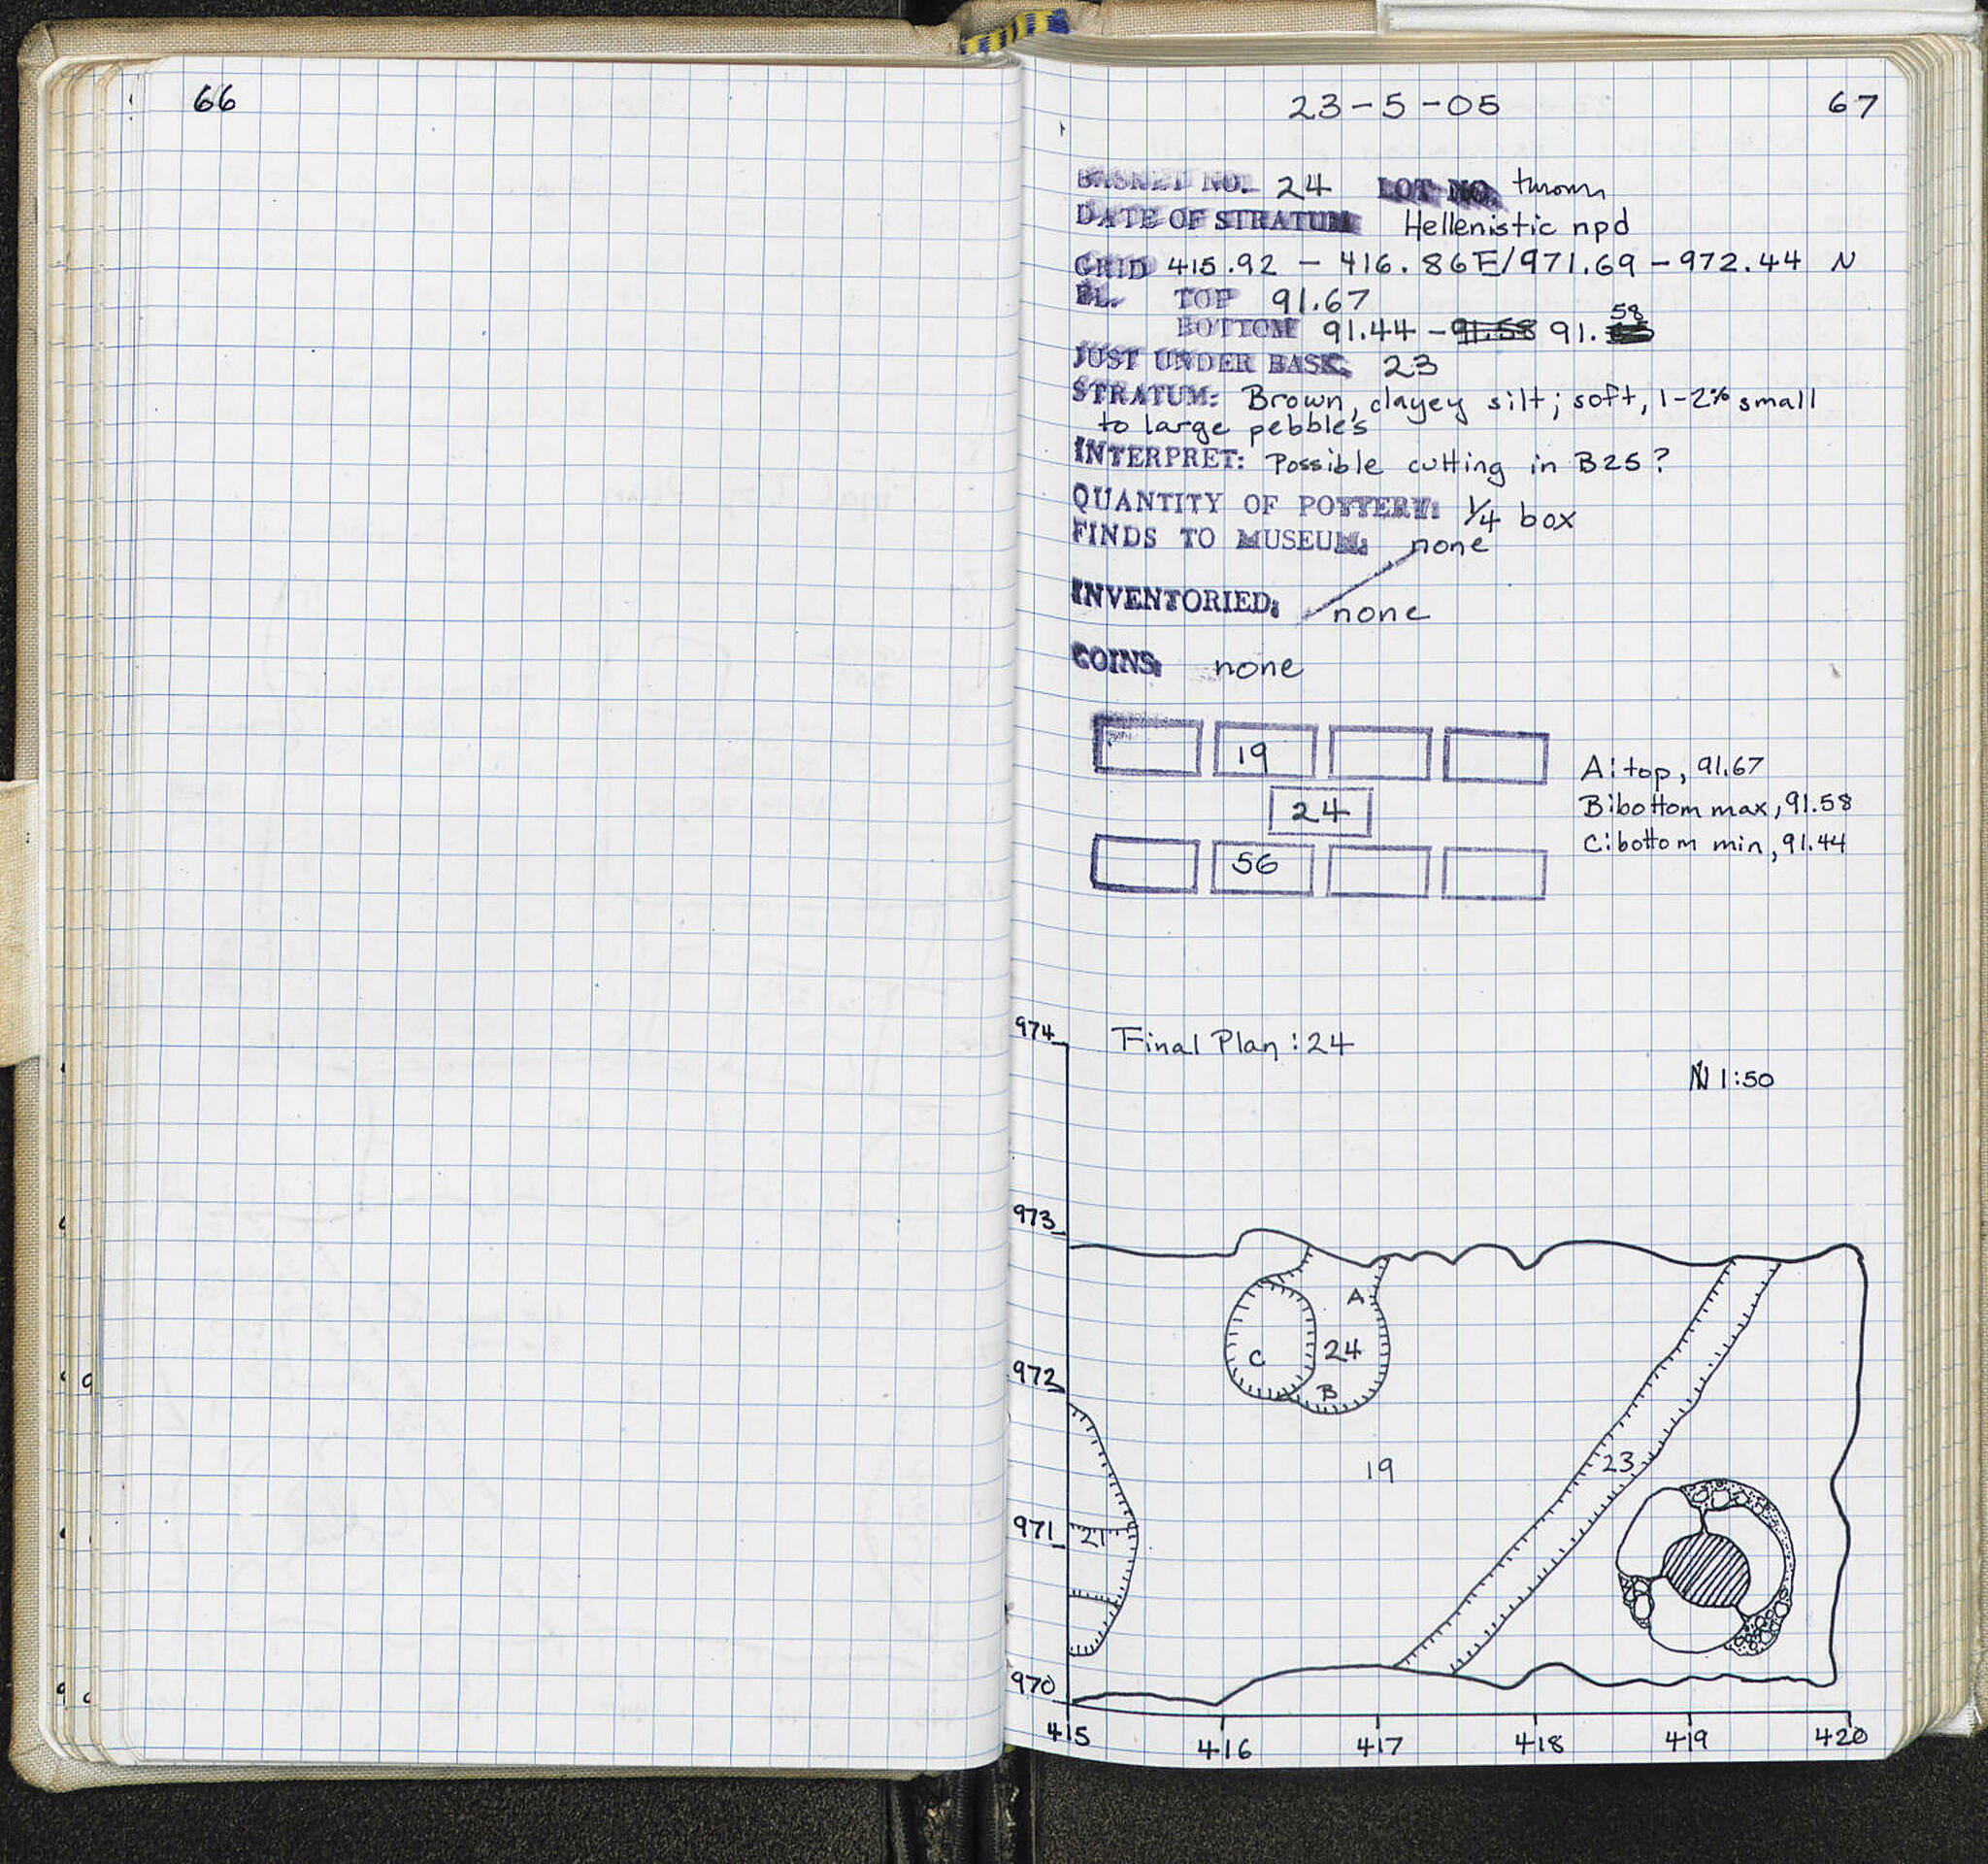 66
23-5-05 67
BASKET NO. 24 LOT NO. thrown
DATE OF STRATUM Hellenistic npd
GRID 415.92 - 416.86E/971.69 - 972.44 N
EL. TOP 91.67
58
BOTTOM 91.44 - 91.58 91.
JUST UNDER BASK. 23
STRATUM: Brown, clayey silt; soft, 1-2% small
to large pebbles
INTERPRET: Possible cutting in B25?
QUANTITY OF POTTERY: 1/4 box
FINDS TO MUSEUM: none
INVENTORIED: none
COINS: none
19
24
56
A: top, 91.67
B: bottom max, 91.58
C: bottom min, 91.44
974
Final Plan: 24
N 1:50
973
A
24
C
B
972
19
23
971
21
970
415 416 417 418 419 420